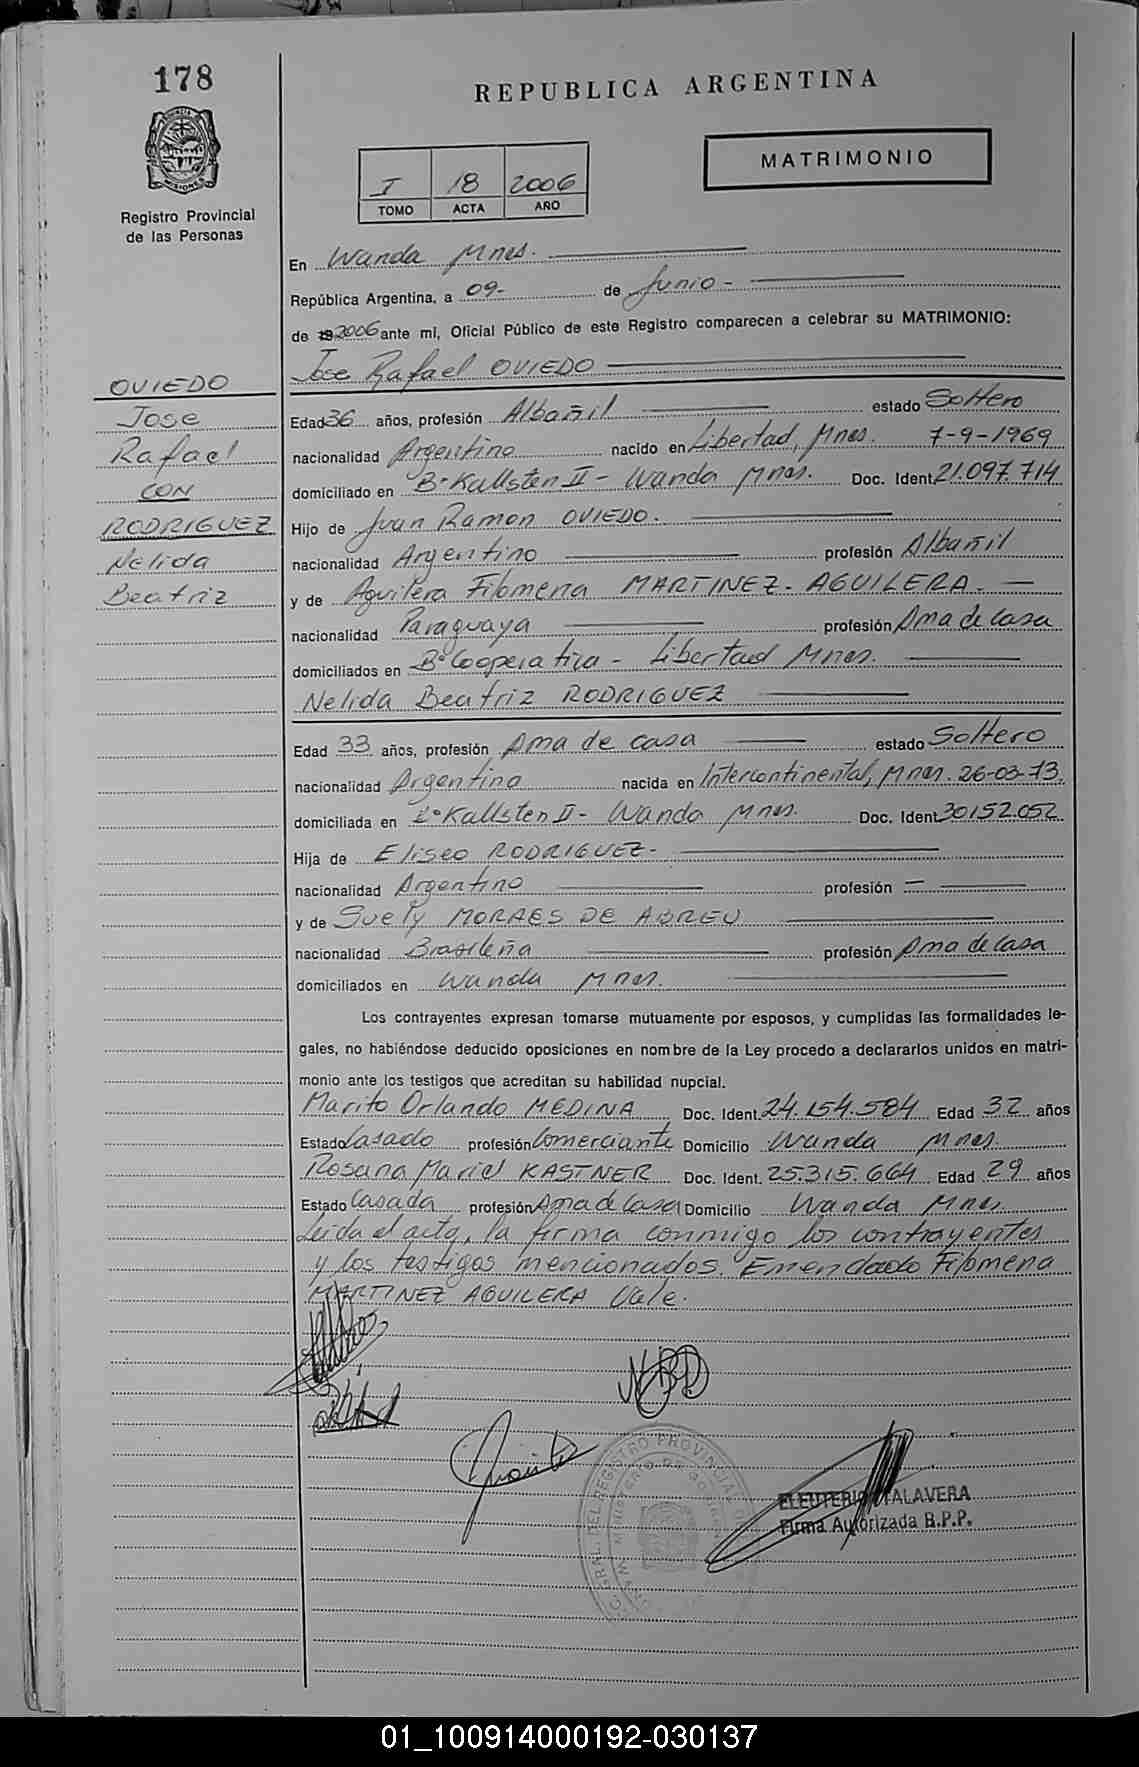 178
REPUBLICA ARGENTINA
MATRIMONIO
PROVINCIA DE MISIONES
I 18 2006
TOMO ACTA AÑO
Registro Provincial
de las Personas
En Wanda Mnes.
República Argentina, a 09- de Junio -
de 19 2006 ante mi, Oficial Público de este Registro comparecen a celebrar su MATRIMONIO:
Jose Rafael OVIEDO
OVIEDO
Jose
Rafael
CON
RODRIGUEZ
Nelida
Beatriz
Edad 36 años, profesión Albañil estado Soltero
nacionalidad Argentino nacido en Libertad, Mnes. 7-9-1969
domiciliado en B° Kallsten II - Wanda Mnes. Doc. Ident. 21.097.714
Hijo de Juan Ramon OVIEDO.
nacionalidad Argentino profesión Albañil
y de Aguilera Filomena MARTINEZ - AGUILERA.
nacionalidad Paraguaya profesión Ama de Casa
domiciliados en B° Cooperativa - Libertad Mnes.
Nelida Beatriz RODRIGUEZ
Edad 33 años, profesión Ama de casa estado Soltero
nacionalidad Argentina nacida en Intercontinental, Mnes. 26-03-73.
domiciliada en B° Kallsten II - Wanda Mnes. Doc. Ident. 30152.052
Hija de Eliseo RODRIGUEZ-
nacionalidad Argentino profesión —
y de Suely MORAES DE ABREU
nacionalidad Brasileña profesión Ama de Casa
domiciliados en Wanda Mnes.
Los contrayentes expresan tomarse mutuamente por esposos, y cumplidas las formalidades le-
gales, no habiéndose deducido oposiciones en nombre de la Ley procedo a declararlos unidos en matri-
monio ante los testigos que acreditan su habilidad nupcial.
Marito Orlando MEDINA Doc. Ident. 24.154.584 Edad 32 años
Estado Casado profesión Comerciante Domicilio Wanda Mnes.
Rosana Mariel KASTNER Doc. Ident. 25.315.664 Edad 29 años
Estado Casada profesión Ama de Casa Domicilio Wanda Mnes.
Leida el acta, la firma conmigo los contrayentes
y los testigos mencionados. Emendado Filomena
MARTINEZ AGUILERA Vale.
NBD
REGISTRO PROVINCIAL
ELEUTERIO TALAVERA
Firma Autorizada R.P.P.
01_100914000192-030137